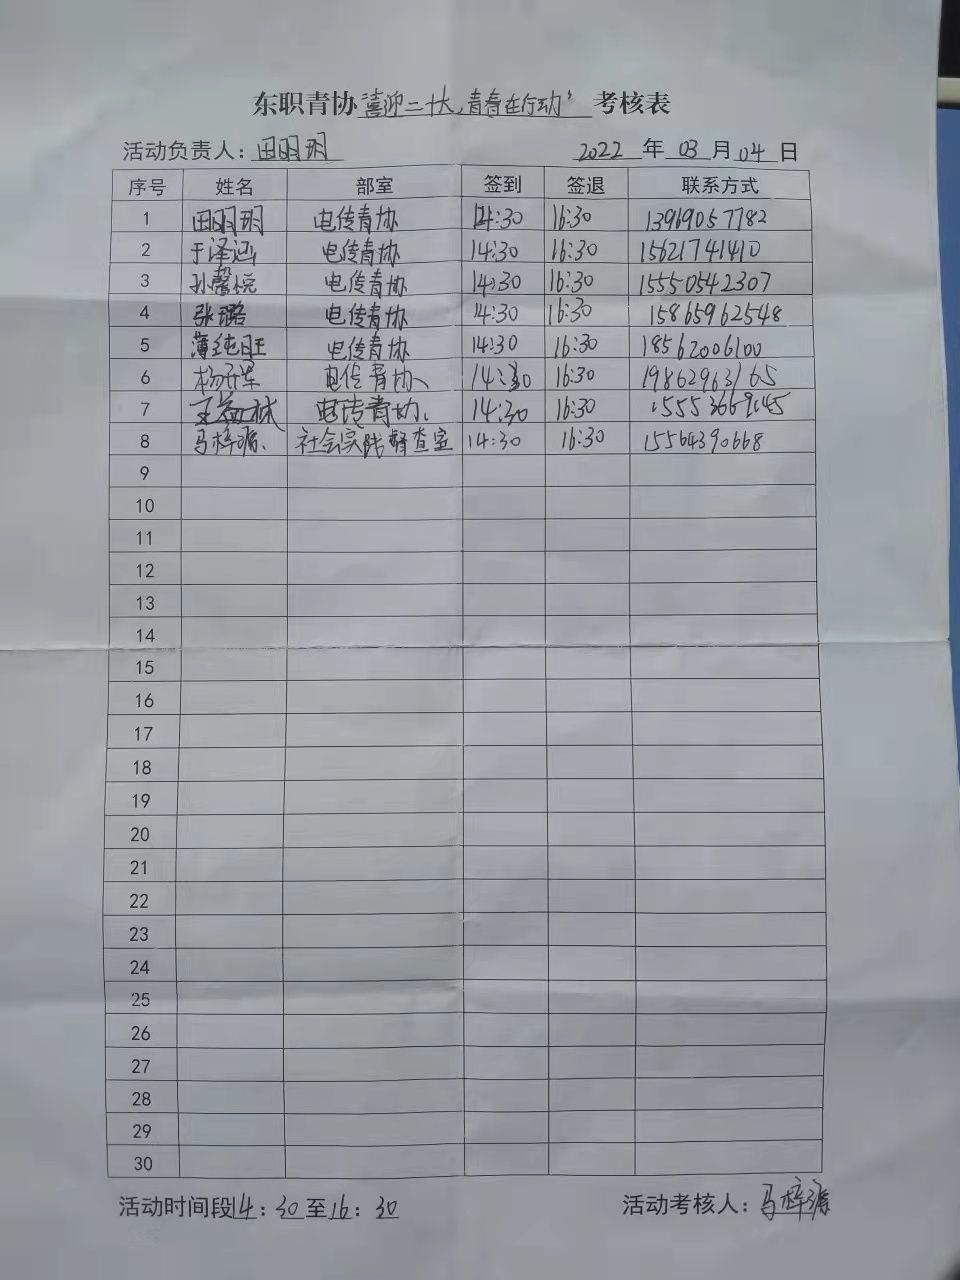 东职青协喜迎二十大,青春在行动’ 考核表
活动负责人: 田明玥 2022 年 03 月 04 日
序号 姓名 部室 签到 签退 联系方式
1 田明玥 电传青协 14:30 16:30 13969057782
2 于泽涵 电传青协 14:30 16:30 15621741410
3 孙馨悦 电传青协 14:30 16:30 15550542307
4 张璐 电传青协 14:30 16:30 15865962548
5 薄纯旺 电传青协 14:30 16:30 18562006100
6 电传青协 14:30 16:30 19862963165
7 电传青协 14:30 16:30
8 马梓源 社会实践督查室 14:30 16:30 15564390668
9
10
11
12
13
14
15
16
17
18
19
20
21
22
23
24
25
26
27
28
29
30
活动时间段14:30至16:30 活动考核人:马梓源